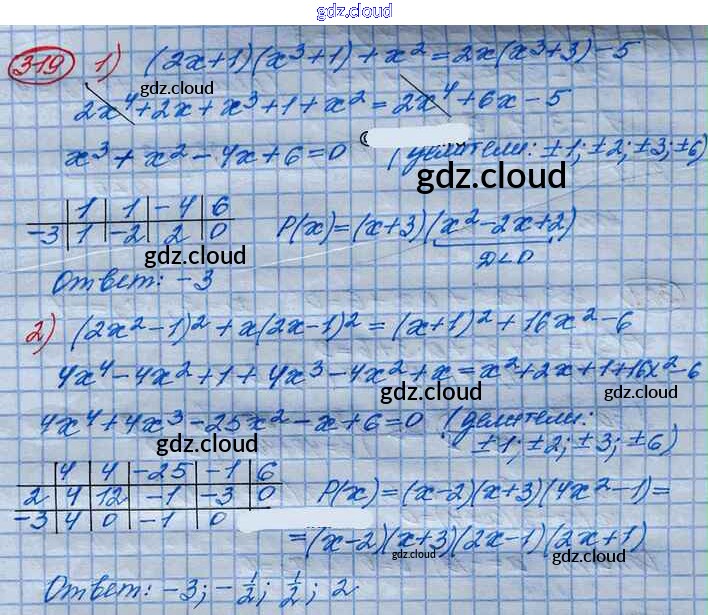 gdz.cloud
319 1) (2x+1)(x³+1)+x²=2x(x³+3)-5
gdz.cloud gdz.cloud
2x⁴+2x+x³+1+x²=2x⁴+6x-5
x³+x²-4x+6=0 (делители: ±1; ±2; ±3; ±6)
gdz.cloud
| 1 | 1 | -4 | 6
-3 | 1 | -2 | 2 | 0 P(x)=(x+3)(x²-2x+2)
gdz.cloud D<0
Ответ: -3
gdz.cloud
2) (2x²-1)²+x(2x-1)²=(x+1)²+16x²-6
4x⁴-4x²+1+4x³-4x²+x=x²+2x+1+16x²-6
gdz.cloud
4x⁴+4x³-25x²-x+6=0 (делители:
gdz.cloud ±1; ±2; ±3; ±6)
| 4 | 4 | -25 | -1 | 6
2 | 4 | 12 | -1 | -3 | 0 P(x)=(x-2)(x+3)(4x²-1)=
-3 | 4 | 0 | -1 | 0
gdz.cloud
=(x-2)(x+3)(2x-1)(2x+1)
gdz.cloud gdz.cloud
Ответ: -3; -1/2; 1/2; 2